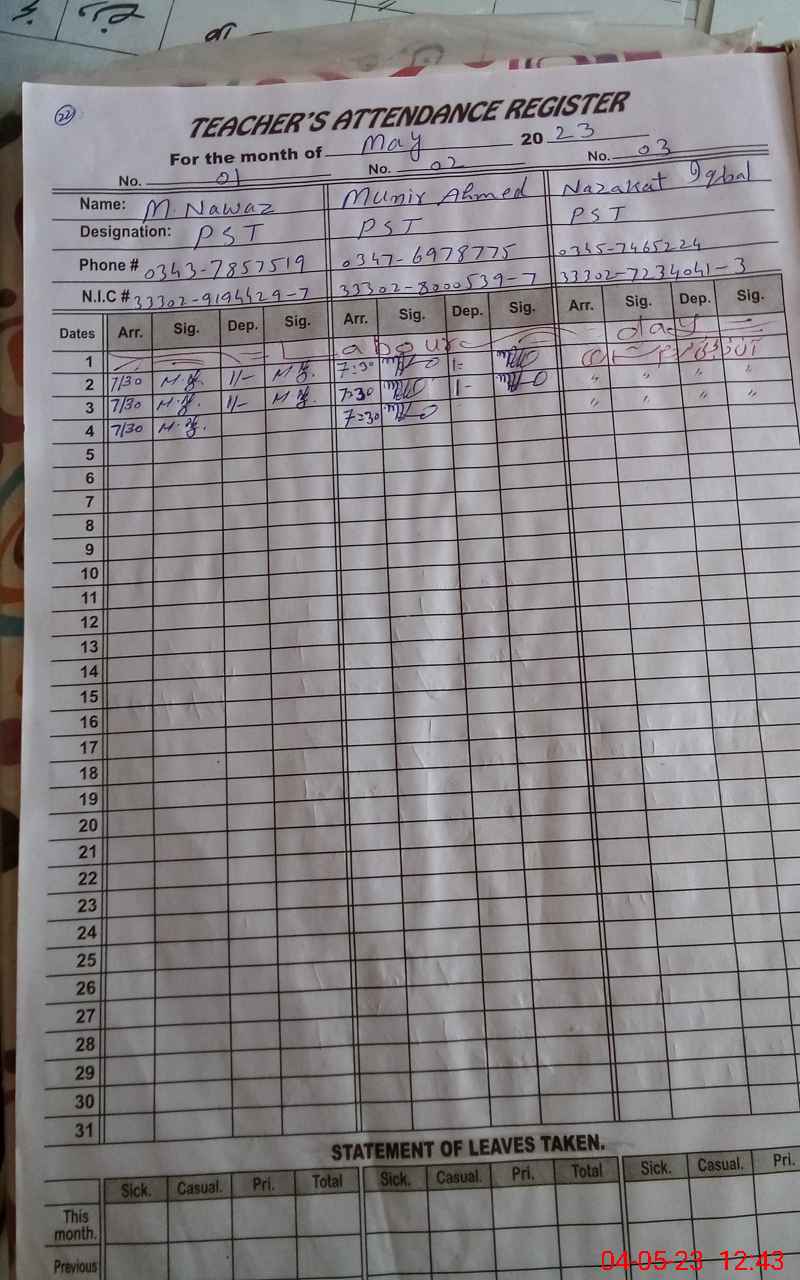 22
TEACHER'S ATTENDANCE REGISTER
For the month of May 2023
No. 01 No. 02 No. 03
Name: M. Nawaz Munir Ahmed Nazakat Iqbal
Designation: PST PST PST
Phone # 0343-7857519 0347-6978775 0345-7465224
N.I.C # 33302-9194429-7 33302-8000539-7 33302-7234041-3
Dates Arr. Sig. Dep. Sig. Arr. Sig. Dep. Sig. Arr. Sig. Dep. Sig.
1 Labour day
2 7/30 1/- 7=30 1-
3 7/30 1/- 7=30 1- " " " "
4 7/30 7=30
5
6
7
8
9
10
11
12
13
14
15
16
17
18
19
20
21
22
23
24
25
26
27
28
29
30
31
STATEMENT OF LEAVES TAKEN.
Sick. Casual. Pri. Total Sick. Casual. Pri. Total Sick. Casual. Pri.
This
month.
Previous
04-05-23 12:43